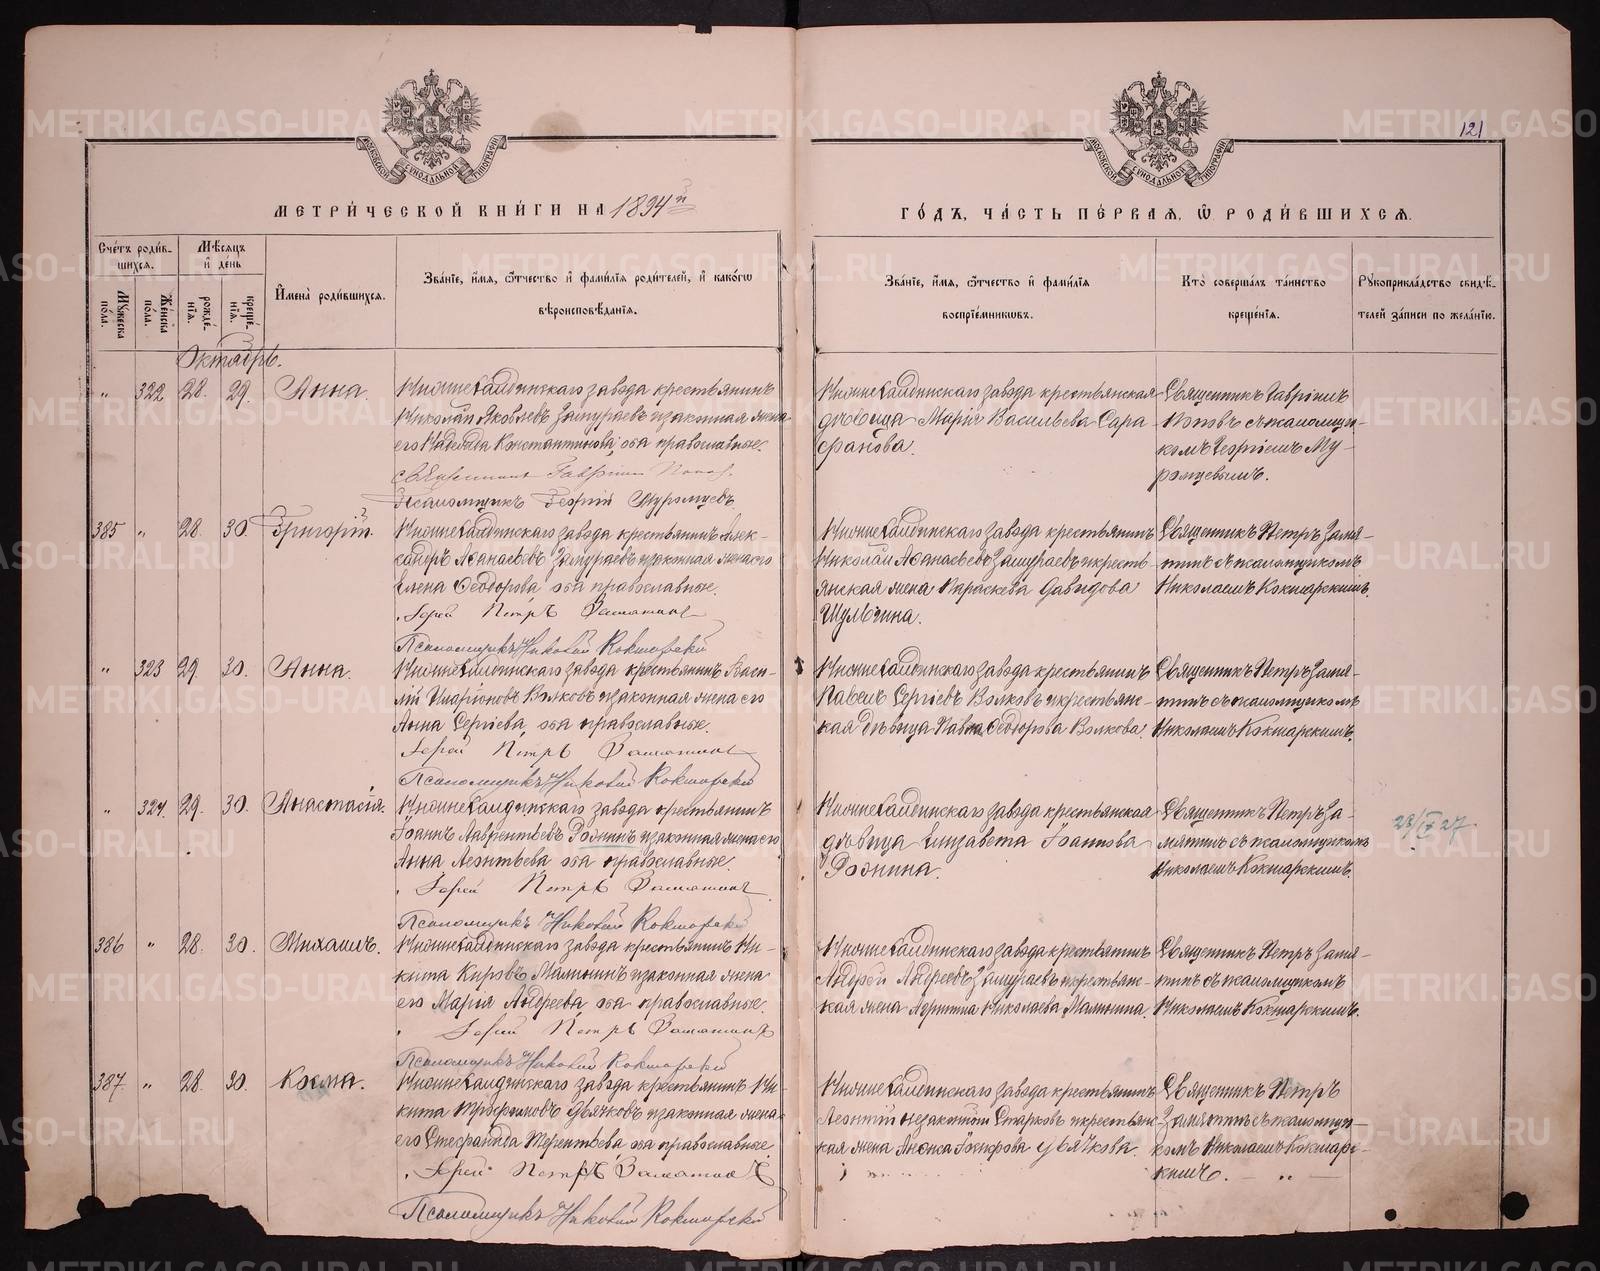 МОСКОВСКОЙ СѴНОДАЛЬНОЙ ТИПОГРАФІИ
МОСКОВСКОЙ СѴНОДАЛЬНОЙ ТИПОГРАФІИ
121
МЕТРИ́ЧЕСКОЙ КНИ́ГИ НА 1894й
ГО́ДЪ, ЧА́СТЬ ПЕ́РВАЯ, Ѡ РОДИ́ВШИХСЯ.
Сче́тъ роди́в-
шихся.
Мꙋжеска по́ла.
Же́нска по́ла.
Мѣ́сяцъ и҆ де́нь
рожде́-нїѧ.
креще́-нїѧ.
И҆мена̀ роди́вшихся.
Зва́нїе, и҆́мѧ, ѻ҆́тчество и҆ фами́лїѧ роди́телей, и҆ како́гѡ
вѣроисповѣ́данїѧ.
Зва́нїе, и҆́мѧ, ѻ҆́тчество и҆ фами́лїѧ
воспрїе́мникѡвъ.
Кто̀ соверша́лъ та́инство
креще́нїѧ.
Рꙋкоприкла́дство свидѣ́-
телей за́писи по жела́нїю.
Октябрь.
" 322 28. 29. Анна.
НижнеСалдинскаго завода крестьянинъ
Николай Яковлевъ Замураевъ и законная жена
его Надежда Константинова, оба православные.
Священникъ Гавріилъ Попов.
Псаломщикъ Георгій Муромцевъ
НижнеСалдинскаго завода крестьянская
дѣвица Марія Васильева Сара
фанова.
Священникъ Гавріилъ
Поповъ съ псаломщи-
комъ Георгіемъ Му-
ромцевымъ.
385 " 28. 30. Григорій.
НижнеСалдинскаго завода крестьянинъ Алек-
сандръ Афанасьевъ Замураевъ и законная жена его
Елена Ѳеодорова, оба православные.
Іерей Петръ Замятинъ
Псаломщикъ Николай Кокшарскій
НижнеСалдинскаго завода крестьянинъ
Николай Афанасьевъ Замураевъ и кресть-
янская жена Параскева Давидова
Шульгина.
Священникъ Петръ Замя-
тинъ съ псаломщикомъ
Николаемъ Кокшарскимъ.
" 323 29. 30. Анна.
НижнеСалдинскаго завода крестьянинъ Васи-
лій Иларіоновъ Волковъ и законная жена его
Анна Сергіева, оба православные.
Іерей Петръ Замятинъ
Псаломщикъ Николай Кокшарскій
НижнеСалдинскаго завода крестьянинъ
Павелъ Сергіевъ Волковъ и крестьянс-
кая дѣвица Павла Ѳеодорова Волкова.
Священникъ Петръ Замя-
тинъ съ псаломщикомъ
Николаемъ Кокшарскимъ.
" 324. 29. 30. Анастасія.
НижнеСалдинскаго завода крестьянинъ
Іоаннъ Лаврентьевъ Роднинъ и законная жена его
Анна Леонтьева оба православные.
Іерей Петръ Замятинъ
Псаломщикъ Николай Кокшарскій
НижнеСалдинскаго завода крестьянская
дѣвица Елизавета Іоаннова
Роднина.
Священникъ Петръ За-
мятинъ съ псаломщикомъ
Николаемъ Кокшарскимъ.
386 " 28. 30. Михаилъ.
НижнеСалдинскаго завода крестьянинъ Ни-
кита Кировъ Мамынинъ и законная жена
его Марія Андреева, оба православные.
Іерей Петръ Замятинъ
Псаломщикъ Николай Кокшарскій
НижнеСалдинскаго завода крестьянинъ
Андрей Андреевъ Замураевъ и крестьянс-
кая жена Николаева Мамынина.
Священникъ Петръ Замя-
тинъ съ псаломщикомъ
Николаемъ Кокшарскимъ.
387. " 28. 30. Косма.
НижнеСалдинскаго завода крестьянинъ Ни-
кита Трофимовъ Дьячковъ и законная жена
его Стефанида Терентьева оба православные.
Іерей Петръ Замятинъ
Псаломщикъ Николай Кокшарскій
НижнеСалдинскаго завода крестьянинъ
Леонтій незаконной Старковъ и крестьянс
кая жена Анѳиса Дьячкова.
Священникъ Петръ
Замятинъ съ псаломщи-
комъ Николаемъ Кокшарс-
кимъ.
METRIKI.GASO-URAL.RU